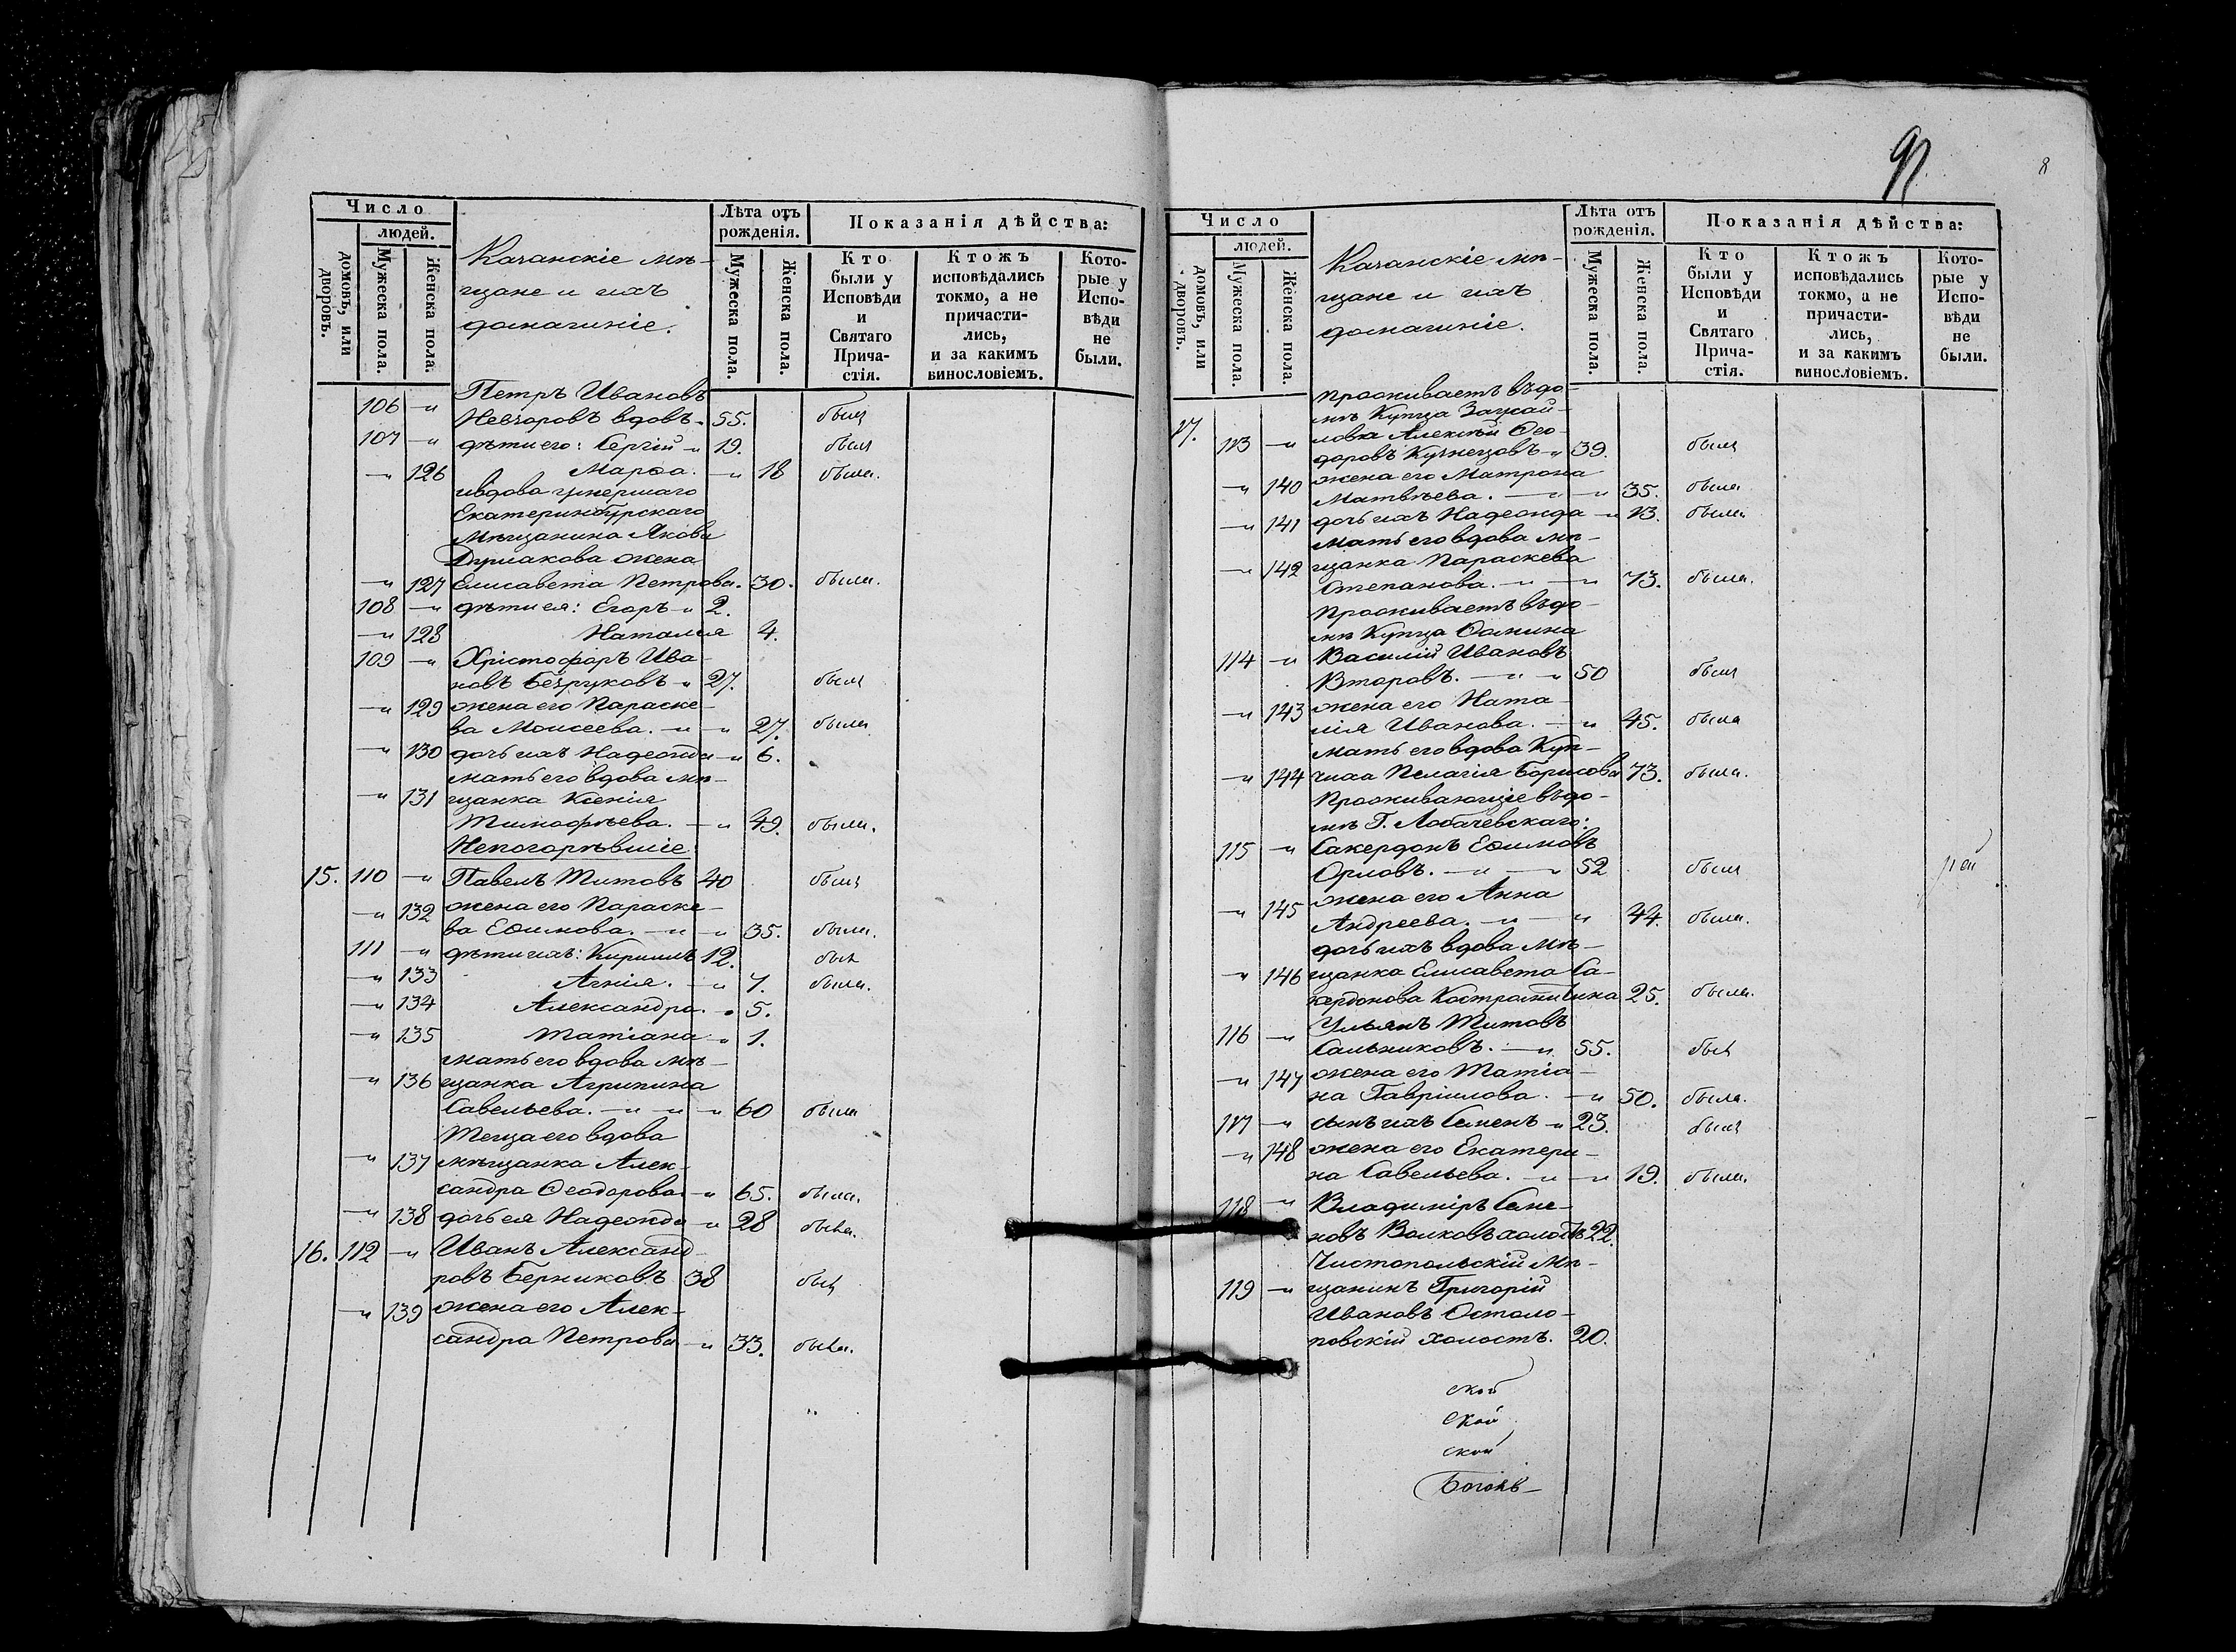 Число
людей.
домовъ, или дворовъ.
Мужеска пола.
Женска пола.
Казанскіе мѣ-
щане и ихъ
домашніе.
Лѣта отъ рожденія.
Мужеска пола.
Женска пола.
Показанія дѣйства:
Кто были у Исповѣди и Святаго Прича-стія.
Ктожъ исповѣдались токмо, а не причасти-лись, и за какимъ винословіемъ.
Кото-рые у Испо-вѣди не были.
Петръ Ивановъ
106 -" Невзоровъ вдовъ. 55. былъ
107 -" дѣти его: Сергій -" 19. былъ
-" 126 Марѳа. -" 18 была.
вдова умершаго
Екатеринбургскаго
Мѣщанина Якова
жена
-" 127 Елисавета Петрова. 30. была.
108 -" дѣти ея: Егоръ -" 2.
-" 128 Наталія 4.
109 -" Христофоръ Ива-
новъ Безруковъ -" 27. былъ
-" 129 жена его Параске-
ва Моисеева. -" -" 27. была
-" 130 дочь ихъ Надежда -" 6.
мать его вдова мѣ-
-" 131 щанка Ксенія
Тимофѣева. -" 49. была.
Непогорѣвшіе
15. 110 -" Павелъ Титовъ 40 былъ
-" 132 жена его Параске-
ва Еѳимова. -" -" 35. была.
111 -" дѣти ихъ: Кириллъ 12. былъ
-" 133 Агнія. -" 7. была.
-" 134 Александра. " 5.
-" 135 Татіана -" 1.
мать его вдова мѣ-
-" 136 щанка Агрипина
Савельева. -" -" -" 60 была
Теща его вдова
-" 137 мѣщанка Алек-
сандра Ѳеодорова -" 65. была.
-" 138 дочь ея Надежда -" 28 была.
16. 112 -" Иванъ Александ-
ровъ Берниковъ 38 былъ
-" 139 жена его Алек-
сандра Петрова -" 33. была.
8
Число
людей.
домовъ, или дворовъ.
Мужеска пола.
Женска пола.
Казанскіе мѣ-
щане и ихъ
домашніе.
Лѣта отъ рожденія.
Мужеска пола.
Женска пола.
Показанія дѣйства:
Кто были у Исповѣди и Святаго Прича-стія.
Ктожъ исповѣдались токмо, а не причасти-лись, и за какимъ винословіемъ.
Кото-рые у Испо-вѣди не были.
проживаетъ въ до-
мѣ Купца
17. 113 -" Алексѣй Ѳео-
доровъ Кузнецовъ -" 39. былъ
-" 140 жена его Матрона
Матвѣева. -" -" 35. была
-" 141 дочь ихъ Надежда -" 13. была
мать его вдова мѣ-
-" 142 щанка Параскева
Степанова. -" -" 73. была.
Проживаетъ въ до-
мѣ Купца Ѳомина
114 -" Василій Ивановъ
Второвъ. -" -" 50 былъ
-" 143 жена его Ната-
лія Иванова. -" 45. была
мать его вдова Куп-
-" 144 чиха Пелагія Борисова 73. была.
Проживающіе въ до-
мѣ Г. Лобачевскаго:
115 -" Сакердонъ Еѳимовъ
Орловъ. -" -" 52 былъ
-" 145 жена его Анна
Андреева. -" -" 44. была.
дочь ихъ вдова мѣ-
-" 146 щанка Елисавета Са-
кердонова Костромитина 25. была.
116 -" Ульянъ Титовъ
Сальниковъ. -" 55. былъ
-" 147 жена его Татіа-
на Гавріилова. -" 50. была.
117 -" сынъ ихъ Семенъ -" 23. былъ
-" 148 жена его Екатери-
на Савельева. -" -" 19. была.
118 -" Владиміръ Семе-
новъ Волковъ холостъ 22.
Чистопольскій мѣ-
119 -" щанинъ Григорій
Ивановъ Остоло-
повскій холостъ. 20.
ской
ской
ской